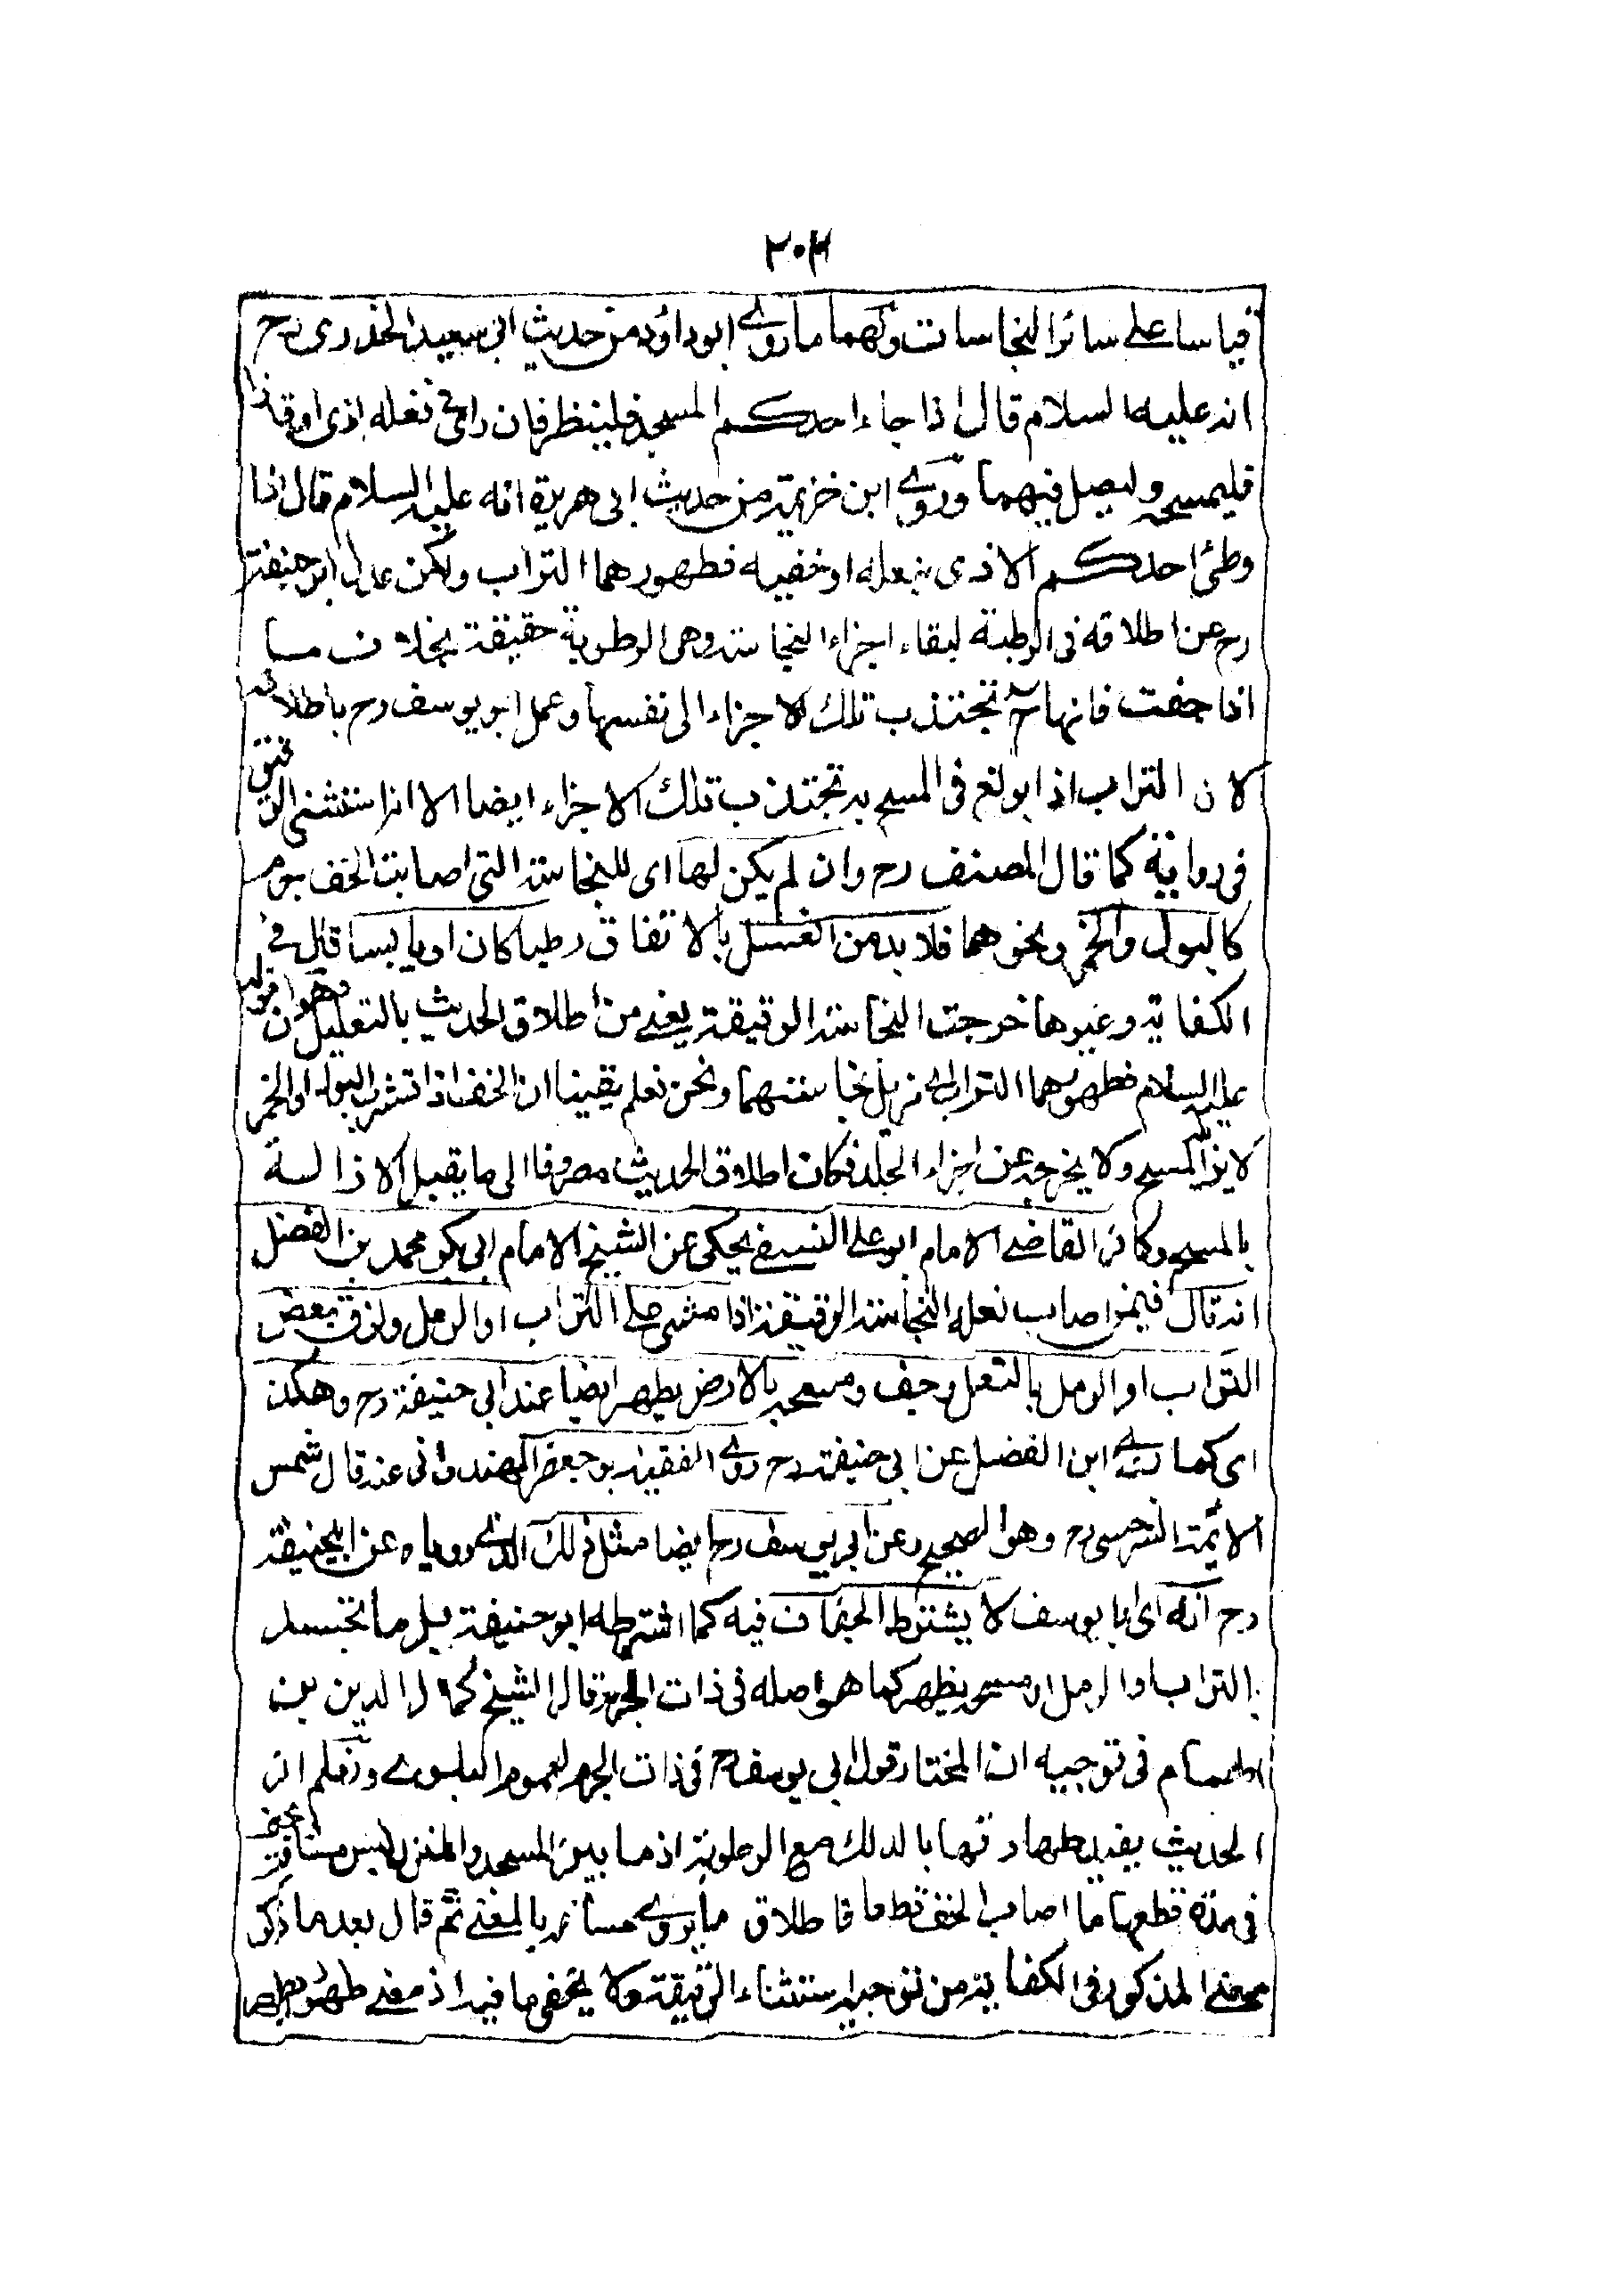 ٢٠٢
قياسا على سائر النجاسات ولهما ما روى ابو داؤد من حديث ابى سعيد الخدرى رح
انه عليه السلام قال اذا جاء احدكم المسجد فلينظر فان راى فى نعله اذى او قذرا
فليمسحه وليصل فيهما وروى ابن خزيمة من حديث ابى هريرة انه عليه السلام قال اذا
وطئ احدكم الاذى بنعله او خفيه فطهورهما التراب ولكن عدل ابو حنيفة
رح عن اطلاقه فى الرطبة لبقاء اجزاء النجاسة وهى الرطوبة حقيقة بخلاف ما
اذا جفت فانها تجتذب تلك الاجزاء الى نفسها وعمل ابو يوسف رح باطلاقه
لان التراب اذا بولغ فى المسح به تجتذب تلك الاجزاء ايضا الا انه استثنى الرقيق
فى رواية كما قال المصنف رح وان لم يكن لها اى للنجاسة التى اصابت الخف جرم
كالبول والخمر ونحوهما فلا بد من الغسل بالاتفاق رطبا كان او يابسا قال فى
الكفاية وغيرها خرجت النجاسة الرقيقة يعنى من اطلاق الحديث بالتعليل وهو ان قوله
عليه السلام فطهورهما التراب اى مزيل نجاستهما ونحن نعلم يقينا ان الخف اذا تشرب البول او الخمر
لا يزيله المسح ولا يخرجه عن اجزاء الجلد فكان اطلاق الحديث مصروفا الى ما يقبل الازالة
بالمسح وكان القاضى الامام ابو على النسفى يحكى عن الشيخ الامام ابى بكر محمد بن الفضل
انه قال فيمن اصاب نعله النجاسة الرقيقة اذا مشى على التراب او الرمل ولزق بعض
التراب او الرمل بالنعل وجف ومسحه بالارض يطهر ايضا عند ابى حنيفة رح وهكذا
اى كما رواه ابن الفضل عن ابى حنيفة رح روى الفقيه ابو جعفر الهندوانى عنه قال شمس
الائمة السرخسى رح وهو الصحيح وعن ابى يوسف رح ايضا مثل ذلك الذى روياه عن ابيحنيفة
رح انه اى ابا يوسف لا يشترط الجفاف فيه كما اشترطه ابو حنيفة بل مهما تجسد
بالتراب او الرمل او مسح يطهر كما هو اصله فى ذات الجرم قال الشيخ كمال الدين بن
الهمام فى توجيه ان المختار قول ابى يوسف رح فى ذات الجرم لعموم البلوى ونعلم ان
الحديث يفيد طهارتها بالدلك مع الرطوبة اذ ما بين المسجد والمنزل ليس مسافة يجف
فى مدة قطعها ما اصاب الخف رطبا فاطلاق ما يروى مساعد بالمعنى ثم قال بعد ما ذكر
معنى المذكور فى الكفاية من توجيه استثناء الرقيقة ولا يخفى ما فيه اذ معنى طهور مطهر